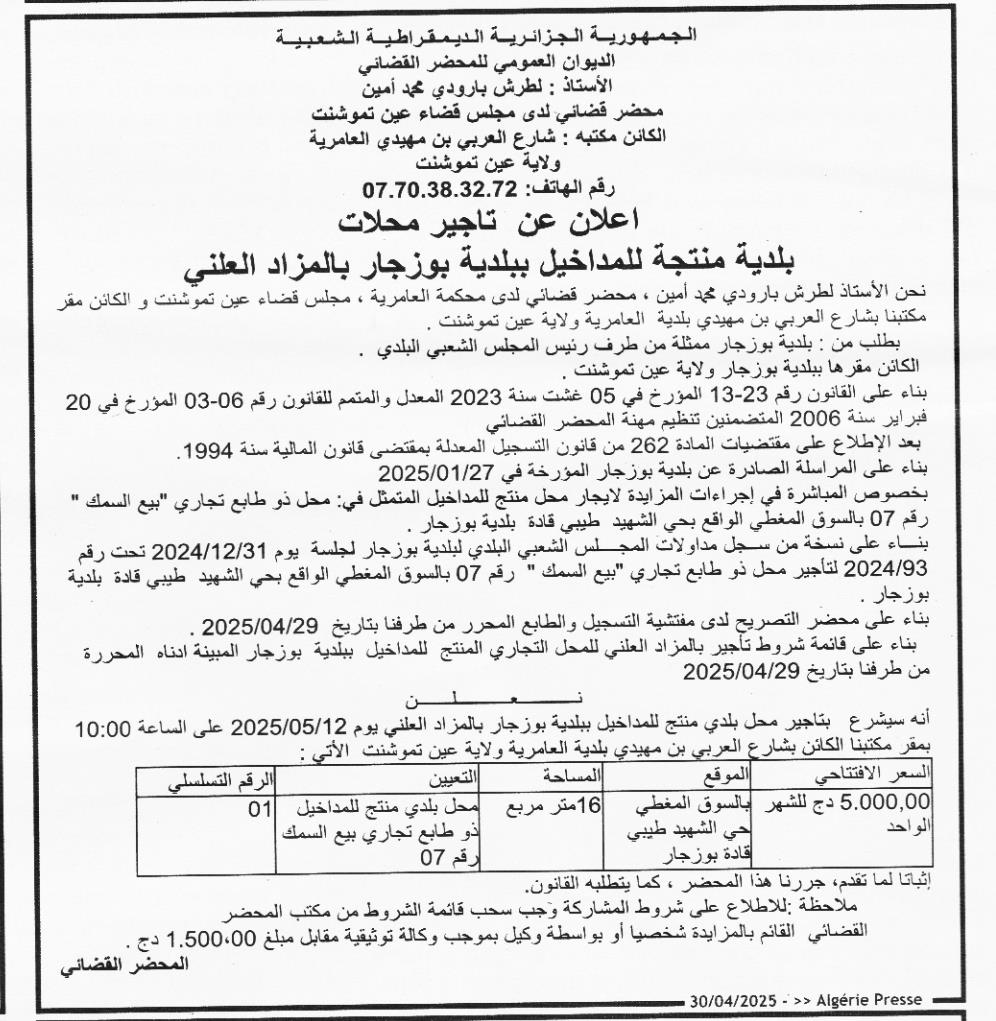 الجمهورية الجزائرية الديمقراطية الشعبية
الديوان العمومي للمحضر القضائي
الأستاذ : لطرش بارودي محمد أمين
محضر قضائي لدى مجلس قضاء عين تموشنت
الكائن مكتبه : شارع العربي بن مهيدي العامرية
ولاية عين تموشنت
رقم الهاتف: 07.70.38.32.72
اعلان عن تاجير محلات
بلدية منتجة للمداخيل ببلدية بوزجار بالمزاد العلني
نحن الأستاذ لطرش بارودي محمد أمين ، محضر قضائي لدى محكمة العامرية ، مجلس قضاء عين تموشنت و الكائن مقر
مكتبنا بشارع العربي بن مهيدي بلدية العامرية ولاية عين تموشنت .
بطلب من : بلدية بوزجار ممثلة من طرف رئيس المجلس الشعبي البلدي .
الكائن مقرها ببلدية بوزجار ولاية عين تموشنت .
بناء على القانون رقم 23-13 المؤرخ في 05 غشت سنة 2023 المعدل والمتمم للقانون رقم 06-03 المؤرخ في 20
فبراير سنة 2006 المتضمنين تنظيم مهنة المحضر القضائي
بعد الإطلاع على مقتضيات المادة 262 من قانون التسجيل المعدلة بمقتضى قانون المالية سنة 1994.
بناء على المراسلة الصادرة عن بلدية بوزجار المؤرخة في 2025/01/27
بخصوص المباشرة في إجراءات المزايدة لايجار محل منتج للمداخيل المتمثل في: محل ذو طابع تجاري "بيع السمك "
رقم 07 بالسوق المغطي الواقع بحي الشهيد طيبي قادة بلدية بوزجار .
بناء على نسخة من سجل مداولات المجلس الشعبي البلدي لبلدية بوزجار لجلسة يوم 2024/12/31 تحت رقم
2024/93 لتأجير محل ذو طابع تجاري "بيع السمك " رقم 07 بالسوق المغطي الواقع بحي الشهيد طيبي قادة بلدية
بوزجار .
بناء على محضر التصريح لدى مفتشية التسجيل والطابع المحرر من طرفنا بتاريخ 2025/04/29 .
بناء على قائمة شروط تأجير بالمزاد العلني للمحل التجاري المنتج للمداخيل ببلدية بوزجار المبينة ادناه المحررة
من طرفنا بتاريخ 2025/04/29
نعلن
أنه سيشرع بتاجير محل بلدي منتج للمداخيل ببلدية بوزجار بالمزاد العلني يوم 2025/05/12 على الساعة 10:00
بمقر مكتبنا الكائن بشارع العربي بن مهيدي بلدية العامرية ولاية عين تموشنت الأتي :
الرقم التسلسلي التعيين المساحة الموقع السعر الافتتاحي
01 محل بلدي منتج للمداخيل 16متر مربع بالسوق المغطي 5.000,00 دج للشهر
ذو طابع تجاري بيع السمك حي الشهيد طيبي الواحد
رقم 07 قادة بوزجار
إثباتا لما تقدم، جررنا هذا المحضر ، كما يتطلبه القانون.
ملاحظة :للاطلاع على شروط المشاركة وجب سحب قائمة الشروط من مكتب المحضر
القضائي القائم بالمزايدة شخصيا أو بواسطة وكيل بموجب وكالة توثيقية مقابل مبلغ 1.500،00 دج .
المحضر القضائي
30/04/2025 - >> Algérie Presse